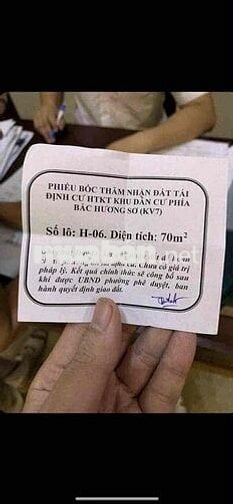 PHIẾU BỐC THĂM NHẬN ĐẤT TÁI
ĐỊNH CƯ HTKT KHU DÂN CƯ PHÍA
BẮC HƯƠNG SƠ (KV7)
Số lô: H-06. Diện tích: 70m²
pháp lý. Kết quả chính thức sẽ công bố sau
khi được UBND phường phê duyệt, ban
hành quyết định giao đất.